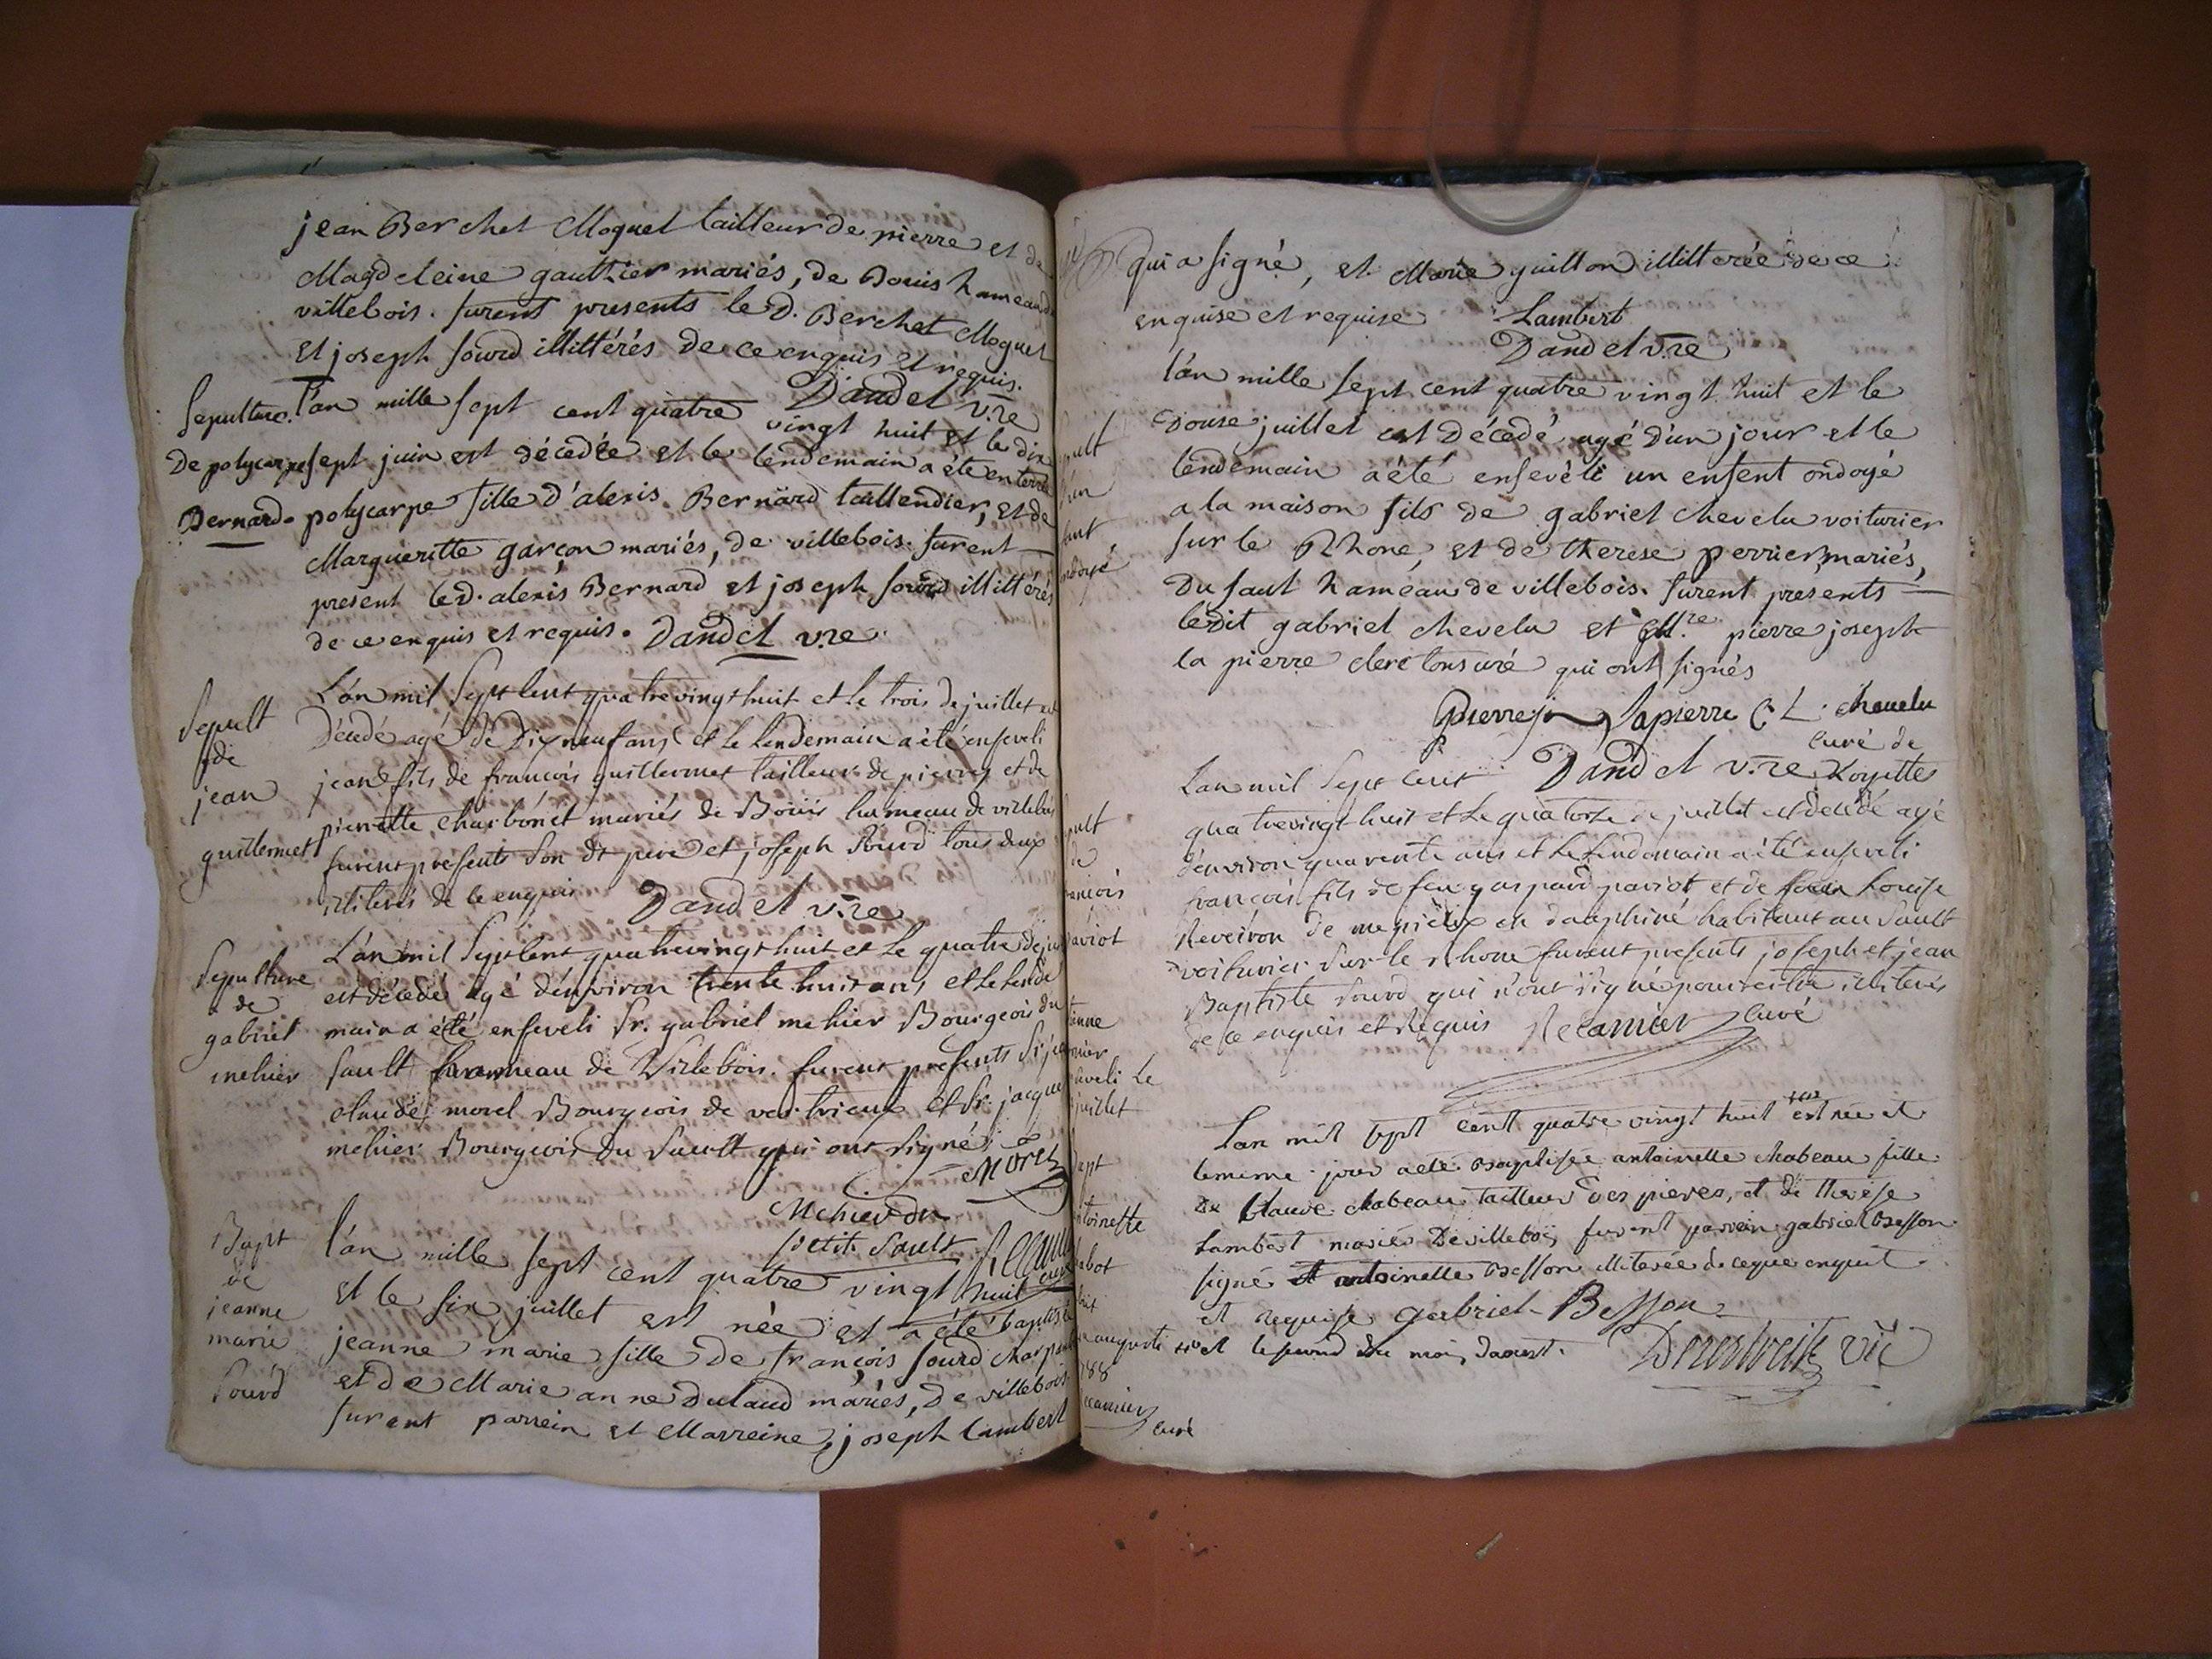 jean Berchet Moguet tailleur de pierre et de
Magdeleine gauthier mariés, de Bouis hameau de
villebois. furent presents le d. Berchet Moguet
et joseph sourd illittérés de ce enquis et requis.
Dandel v.re
Sepulture
De polycarpe
Bernard.
l'an mille sept cent quatre vingt huit et le dix
sept juin est décédée et le lendemain a été enterrée
polycarpe fille d'alexis Bernard taillendier, et de
Margueritte garçon mariés, de villebois. furent
present le d. alexis Bernard et joseph sourd illittérés
de ce enquis et requis. Dandel v.re
Sepult
de
jean
guillermet
L'an mil sept cent quatrevingt huit et le trois de juillet est
Décédé agé de Dixneuf ans et le lendemain a été enseveli
jean fils de francois guillermet tailleur de pierres et de
pierrette charbonet mariés de Bouis hameau de villebois
furent presents son dt pere et joseph sourd tous deux
illiterés de ce enquis Dandel v.re
Sepulture
de
gabriel
mehier
L'an mil sept cent quatrevingt huit et le quatre de jui
est décédé agé d'environ trente huit ans et le lende
main a été enseveli Sr. gabriel mehier Bourgeois du
sault hameau de Villebois. furent presents Sr jea
claude morel Bourgeois de vertrieux et Sr. jacque
mehier Bourgeois du Sault qui ont signé
Morel
Mehier du
petit Sault
Bapt
de
jeanne
marie
Sourd
l'an mille sept cent quatre vingt huit
et le six juillet est née et a été baptisée
jeanne marie fille de françois sourd charpen
et de Marie anne Dulaud mariés, de villebois
furent parrein et Marreine, joseph lambert
qui a signé, et Marie guillon illitterée de ce
enquise et requise Lambert
Dandel v.re
pult
un
fant
ondoyé
l'an mille sept cent quatre vingt huit et le
douse juillet est décedé agé d'un jour et le
lendemain a été enseveli un enfent ondoyé
a la maison fils de gabriel chevelu voiturier
sur le Rhone, et de therese perrier mariés,
du saut hameau de villebois. furent présents
ledit gabriel chevelu et M.re pierre joseph
la pierre clerc tonsuré qui ont signés
Pierre j lapierre C. L. chevelu
Dandel v.re curé de
Loyettes
pult
de
rancois
paviot
Lan mil sept cent
quatrevingt huit et le quatorze de juillet est decédé agé
d'environ quarente ans et le lendemain a été enseveli
françois fils de feu gaspard paviot et de Louise
Reveiron de mepieux en dauphiné habitant au Sault
voiturier sur le rhone furent presents joseph et jean
Baptiste sourd qui n'ont signé pour etre illiterés
de ce enquis et requis Recamier curé
veli le
juillet
Bapt
ntoinette
abot
Lan mil sept cent quatre vingt huit est née et
le meme jour a eté Baptisée antoinette chabeau fille
de Claude chabeau tailleur des pierres, et de therèse
Lambert mariés De villebois furent parrein gabriel Besson
signé et antoinette Besson illiterée de ce que enquit
et requise gabriel Besson
et le second du mois daoust.
augusti
788
recamier
curé
vic